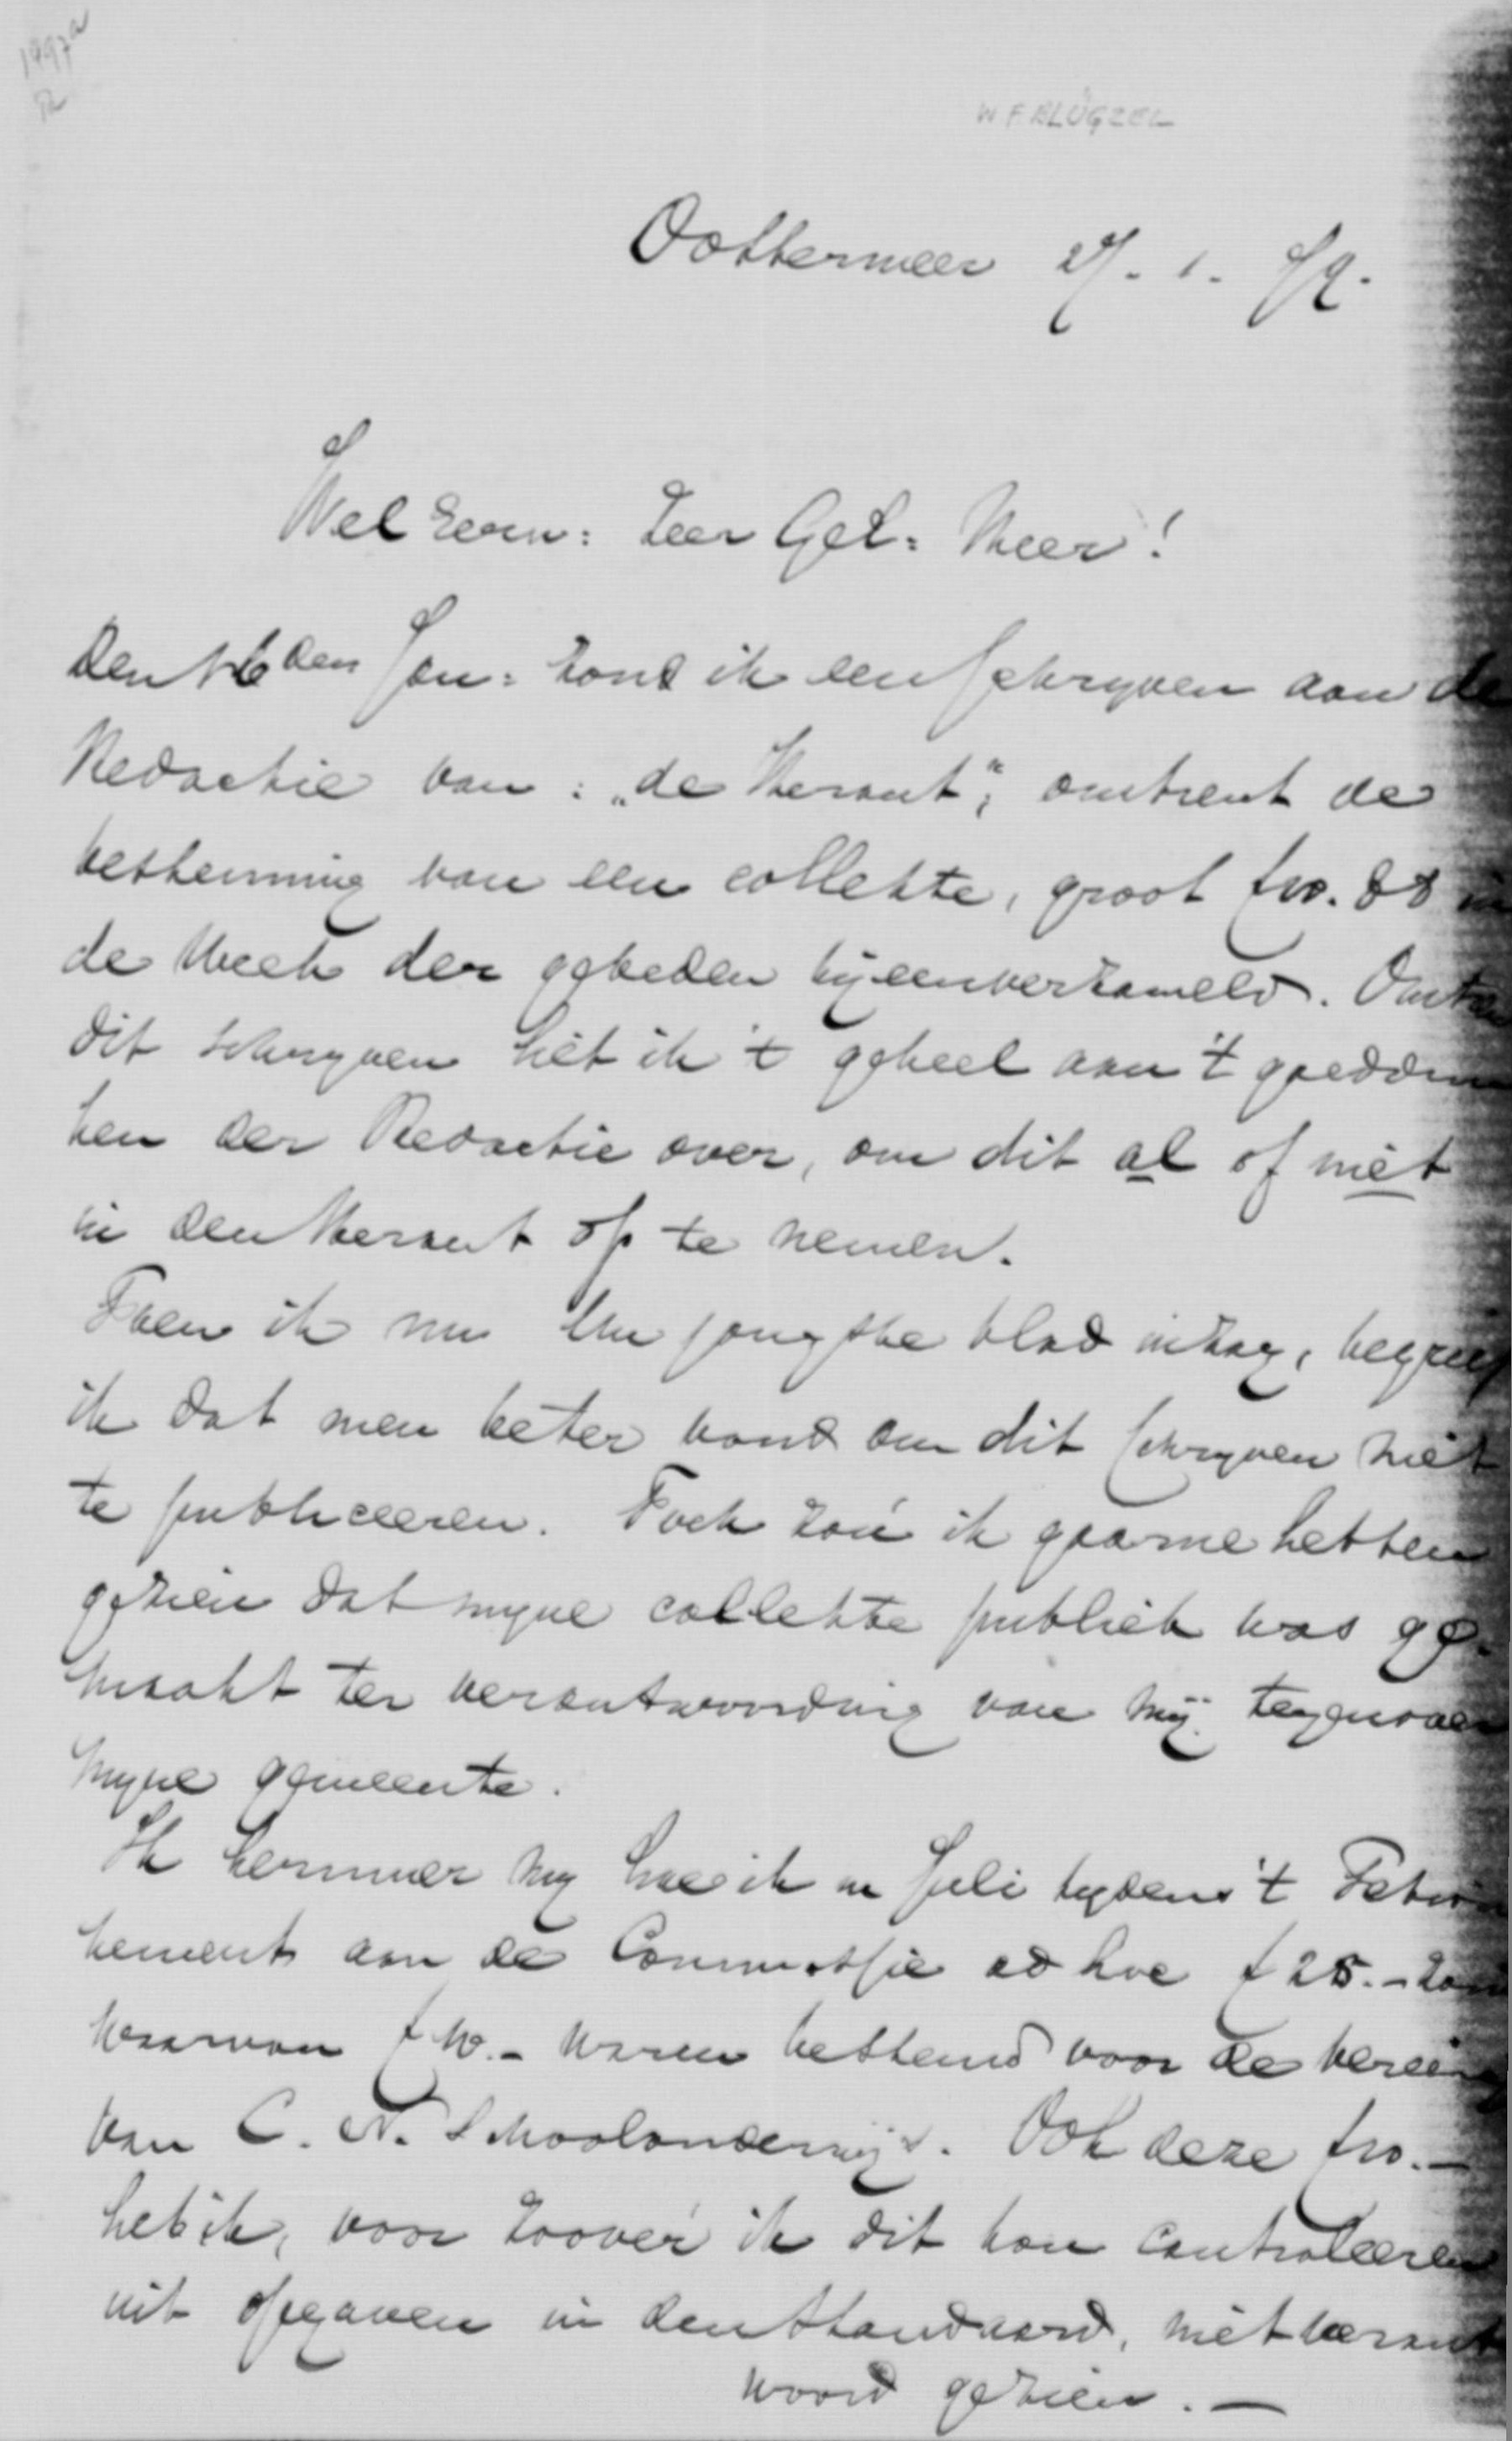 1997a
R
W F BLÜGZEL
Oostermeer 27. 1. 79.
Wel Eerw: Zeer Gel: Heer!
Den 16den Jan: zond ik een schryven aan de
Redactie van: „de Heraut”, omtrent de
bestemming van een collekte, groot f10.88 in
de Week der gebeden bijeenverzameld. Omtr
dit schryven liet ik 't geheel aan 't goeddun
ken der Redactie over, om dit al of niet
in den Heraut op te nemen.
Toen ik nu Uw jongste blad inzag, begreep
ik dat men beter vond om dit schryven niet
te publiceeren. Toch zou ik gaarne hebben
gezien dat myne collekte publiek was ge-
maakt ter verantwoording van mij tegenover
myne gemeente.
Ik herinner my hoe ik in Juli tydens 't Petion
nement aan de Commissie ad hoc f 25.- zond
waarvan f 10.- waren bestemd voor de vereenig
van C. N. Schoolonderwijs. Ook deze f10.-
heb ik, voor zoover ik dit kon controleeren
uit opgaven in den Standaard, niet verant
woord gezien. —